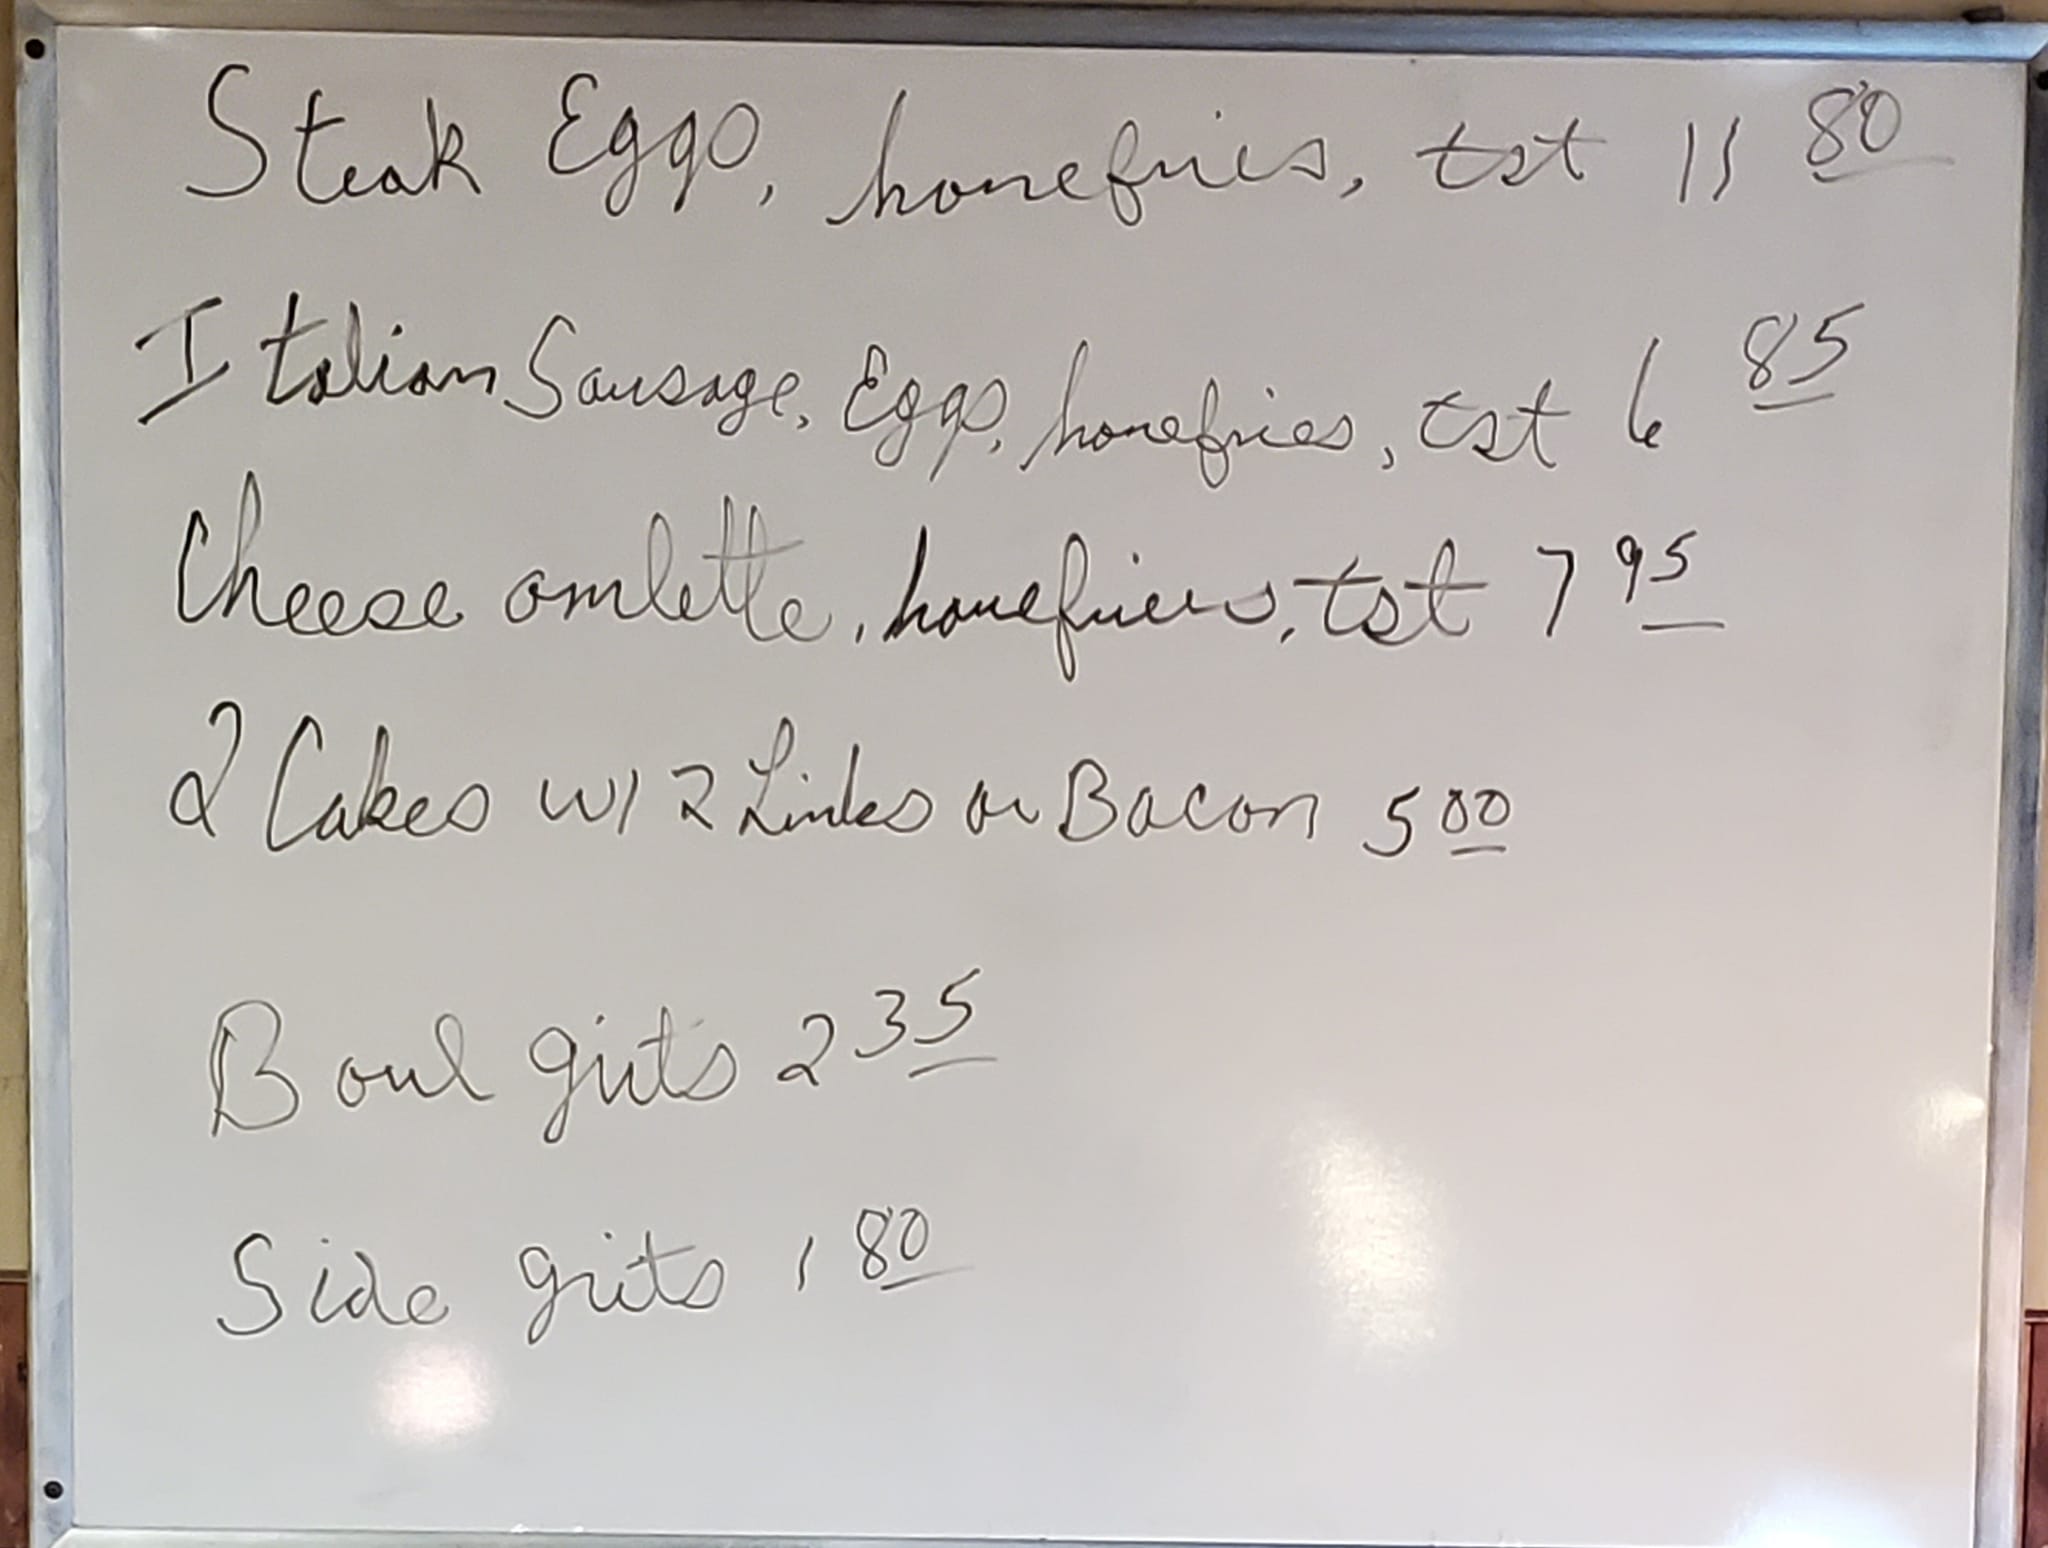 Steak Eggs, homefries, tst 11 80
Italian Sausage, Eggs, homefries, tst 6 85
Cheese omlette, homefries, tst 7 95
2 Cakes w/ 2 Links or Bacon 5 00
Bowl grits 2 35
Side grits 1 80